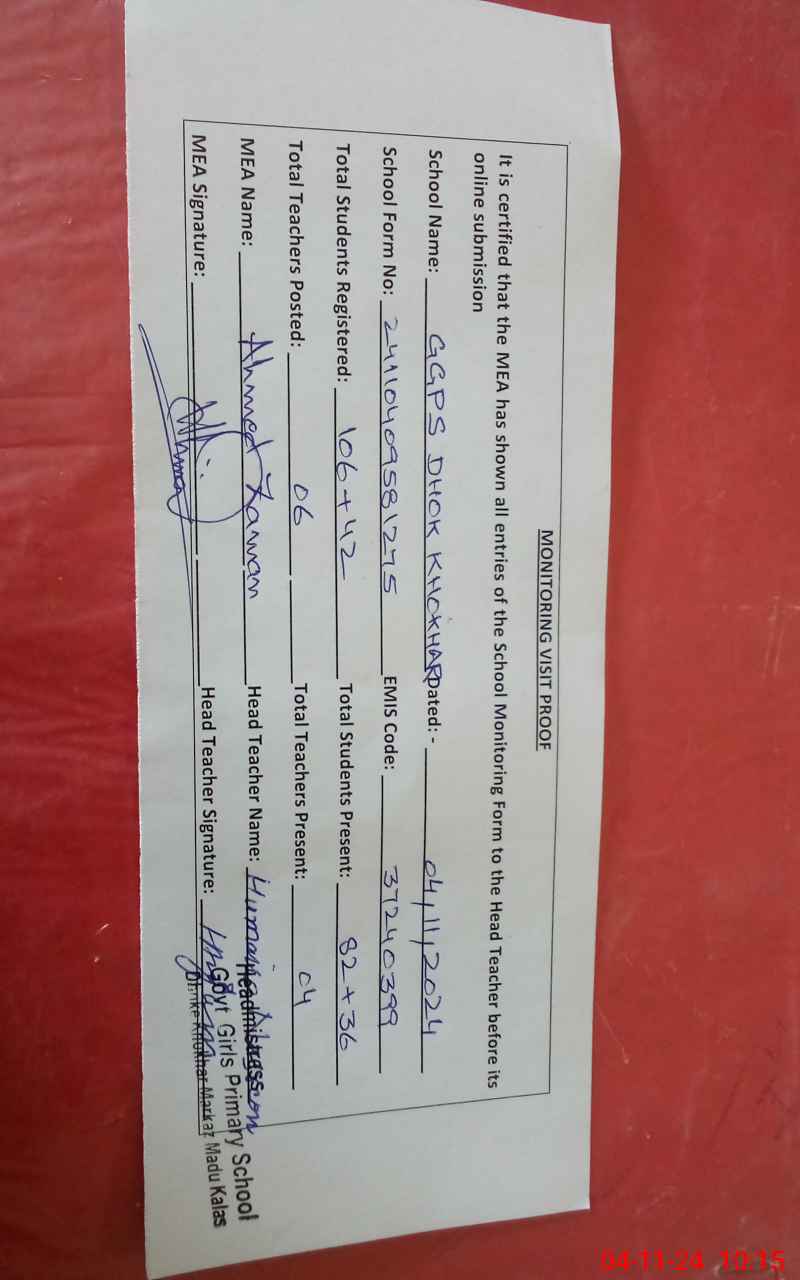 MONITORING VISIT PROOF
It is certified that the MEA has shown all entries of the School Monitoring Form to the Head Teacher before its
online submission
School Name: GGPS DHOK KHOKHAR Dated: - 04,11,2024
School Form No: 24110409581275 EMIS Code: 37240399
Total Students Registered: 106+42 Total Students Present: 82+36
Total Teachers Posted: 06 Total Teachers Present: 04
MEA Name: Ahmed Zaman Head Teacher Name: Humaira
MEA Signature: Head Teacher Signature:
Headmistress
Govt Girls Primary School
Dhoke Khokhar Markaz Madu Kalas
04-11-24 10:15